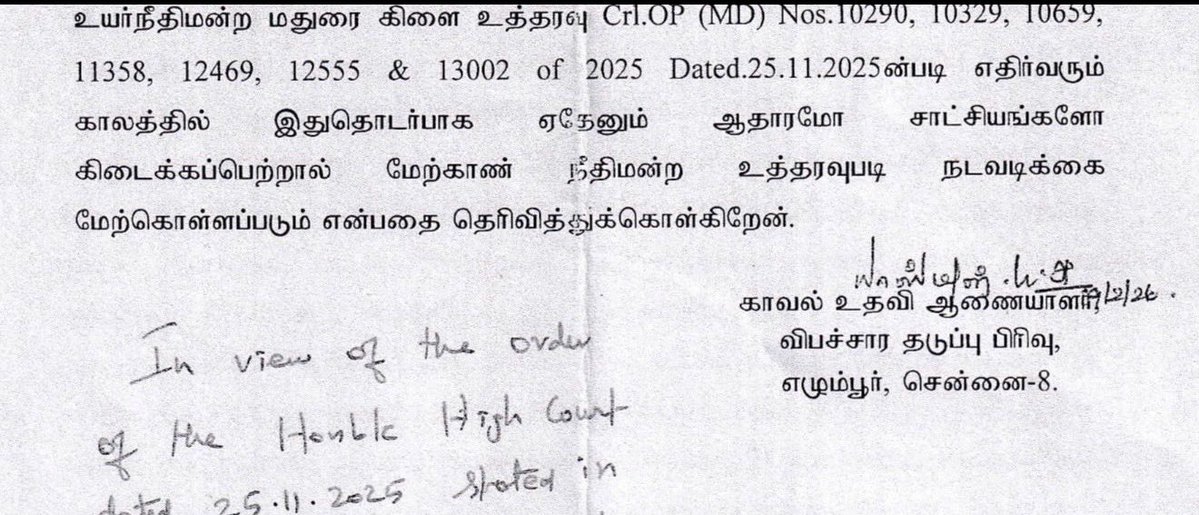 உயர்நீதிமன்ற மதுரை கிளை உத்தரவு Crl.OP (MD) Nos.10290, 10329, 10659,
11358, 12469, 12555 & 13002 of 2025 Dated.25.11.2025ன்படி எதிர்வரும்
காலத்தில் இதுதொடர்பாக ஏதேனும் ஆதாரமோ சாட்சியங்களோ
கிடைக்கப்பெற்றால் மேற்காண் நீதிமன்ற உத்தரவுபடி நடவடிக்கை
மேற்கொள்ளப்படும் என்பதை தெரிவித்துக்கொள்கிறேன்.
காவல் உதவி ஆணையாளர், /2/26.
விபச்சார தடுப்பு பிரிவு,
எழும்பூர், சென்னை-8.
In view of the order
of the Honble High Court
dated 25.11.2025 stated in